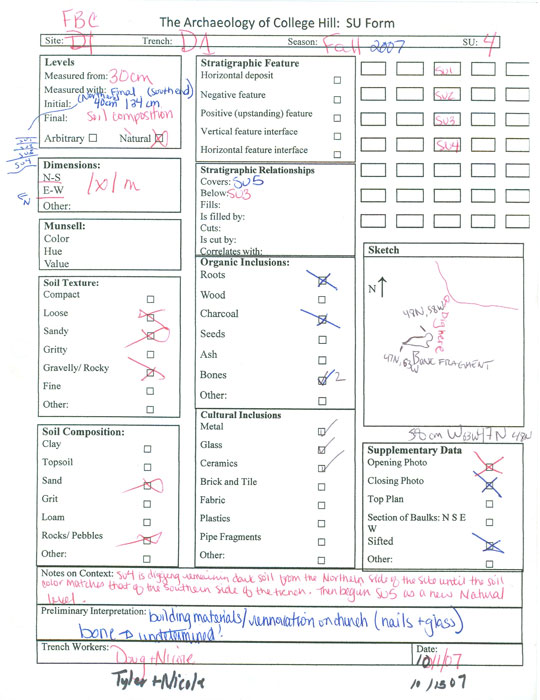 FBC
The Archaeology of College Hill: SU Form
Site: D1 Trench: D1 Season: Fall 2007 SU: 4
Levels
Measured from: 30cm
Measured with: Final (South end)
(Northern)
Initial: 40cm 134cm
Final: Soil composition
Arbitrary Natural
SU4
N
Dimensions:
N-S
E-W
1x1m
Other:
Munsell:
Color
Hue
Value
Soil Texture:
Compact
Loose
Sandy
Gritty
Gravelly/ Rocky
Fine
Other:
Soil Composition:
Clay
Topsoil
Sand
Grit
Loam
Rocks/ Pebbles
Other:
Stratigraphic Feature
Horizontal deposit
Negative feature
Positive (upstanding) feature
Vertical feature interface
Horizontal feature interface
Stratigraphic Relationships
Covers: SU5
Below: SU3
Fills:
Is filled by:
Cuts:
Is cut by:
Correlates with:
Organic Inclusions:
Roots
Wood
Charcoal
Seeds
Ash
Bones 2
Other:
Cultural Inclusions
Metal
Glass
Ceramics
Brick and Tile
Fabric
Plastics
Pipe Fragments
Other:
SU1
SU2
SU3
SU4
Sketch
N
49N, 58W
Dig here
47N, 63W
BONE FRAGMENT
58cm W 63W 47N 49N
Supplementary Data
Opening Photo
Closing Photo
Top Plan
Section of Baulks: N S E
W
Sifted
Other:
Notes on Context: SU4 is digging remaining dark soil from the Northern side of the site until the soil
color matches that of the southern side of the trench. Then begin SU5 as a new Natural
level.
Preliminary Interpretation: building materials/rennovation on church (nails + glass)
bone → undetermined!
Trench Workers: Date:
Doug + Nicole 10/1/07
Tyler + Nicole 10/15 07